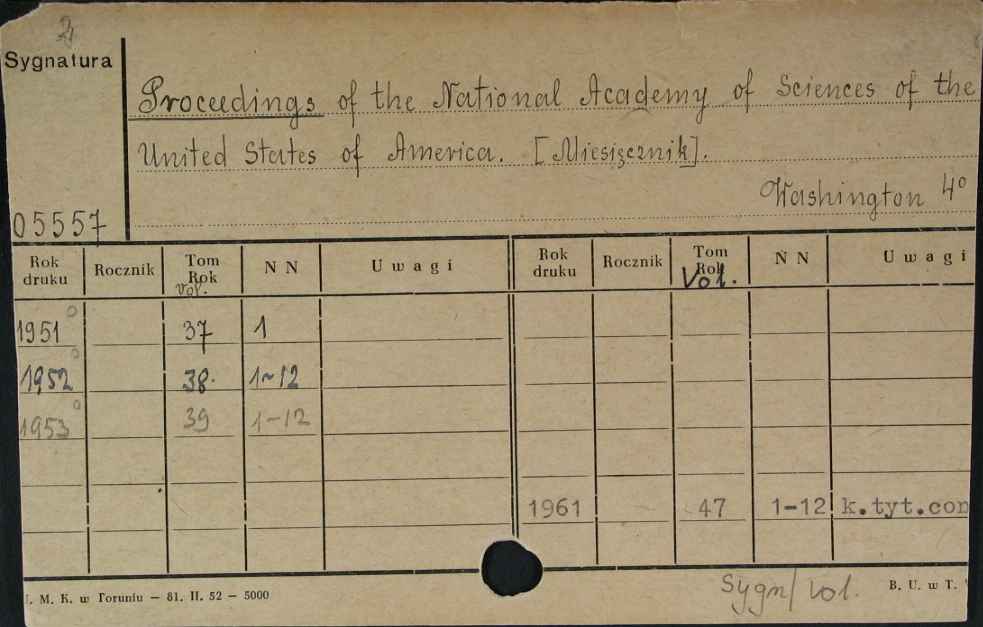 Sygnatura
Proceedings of the National Academy of Sciences of the
United States of America. [Miesięcznik].
Washington 4°
05557
Rok druku Rocznik Tom Rok Vol. N N Uwagi Rok druku Rocznik Tom Rok Vol. N N Uwagi
1951° 37 1
1952° 38. 1-12
1953° 39 1-12
1961 47 1-12 k.tyt.con
Sygn/vol.
. M. K. w Toruniu — 81. II. 52 — 5000
B. U. w T.